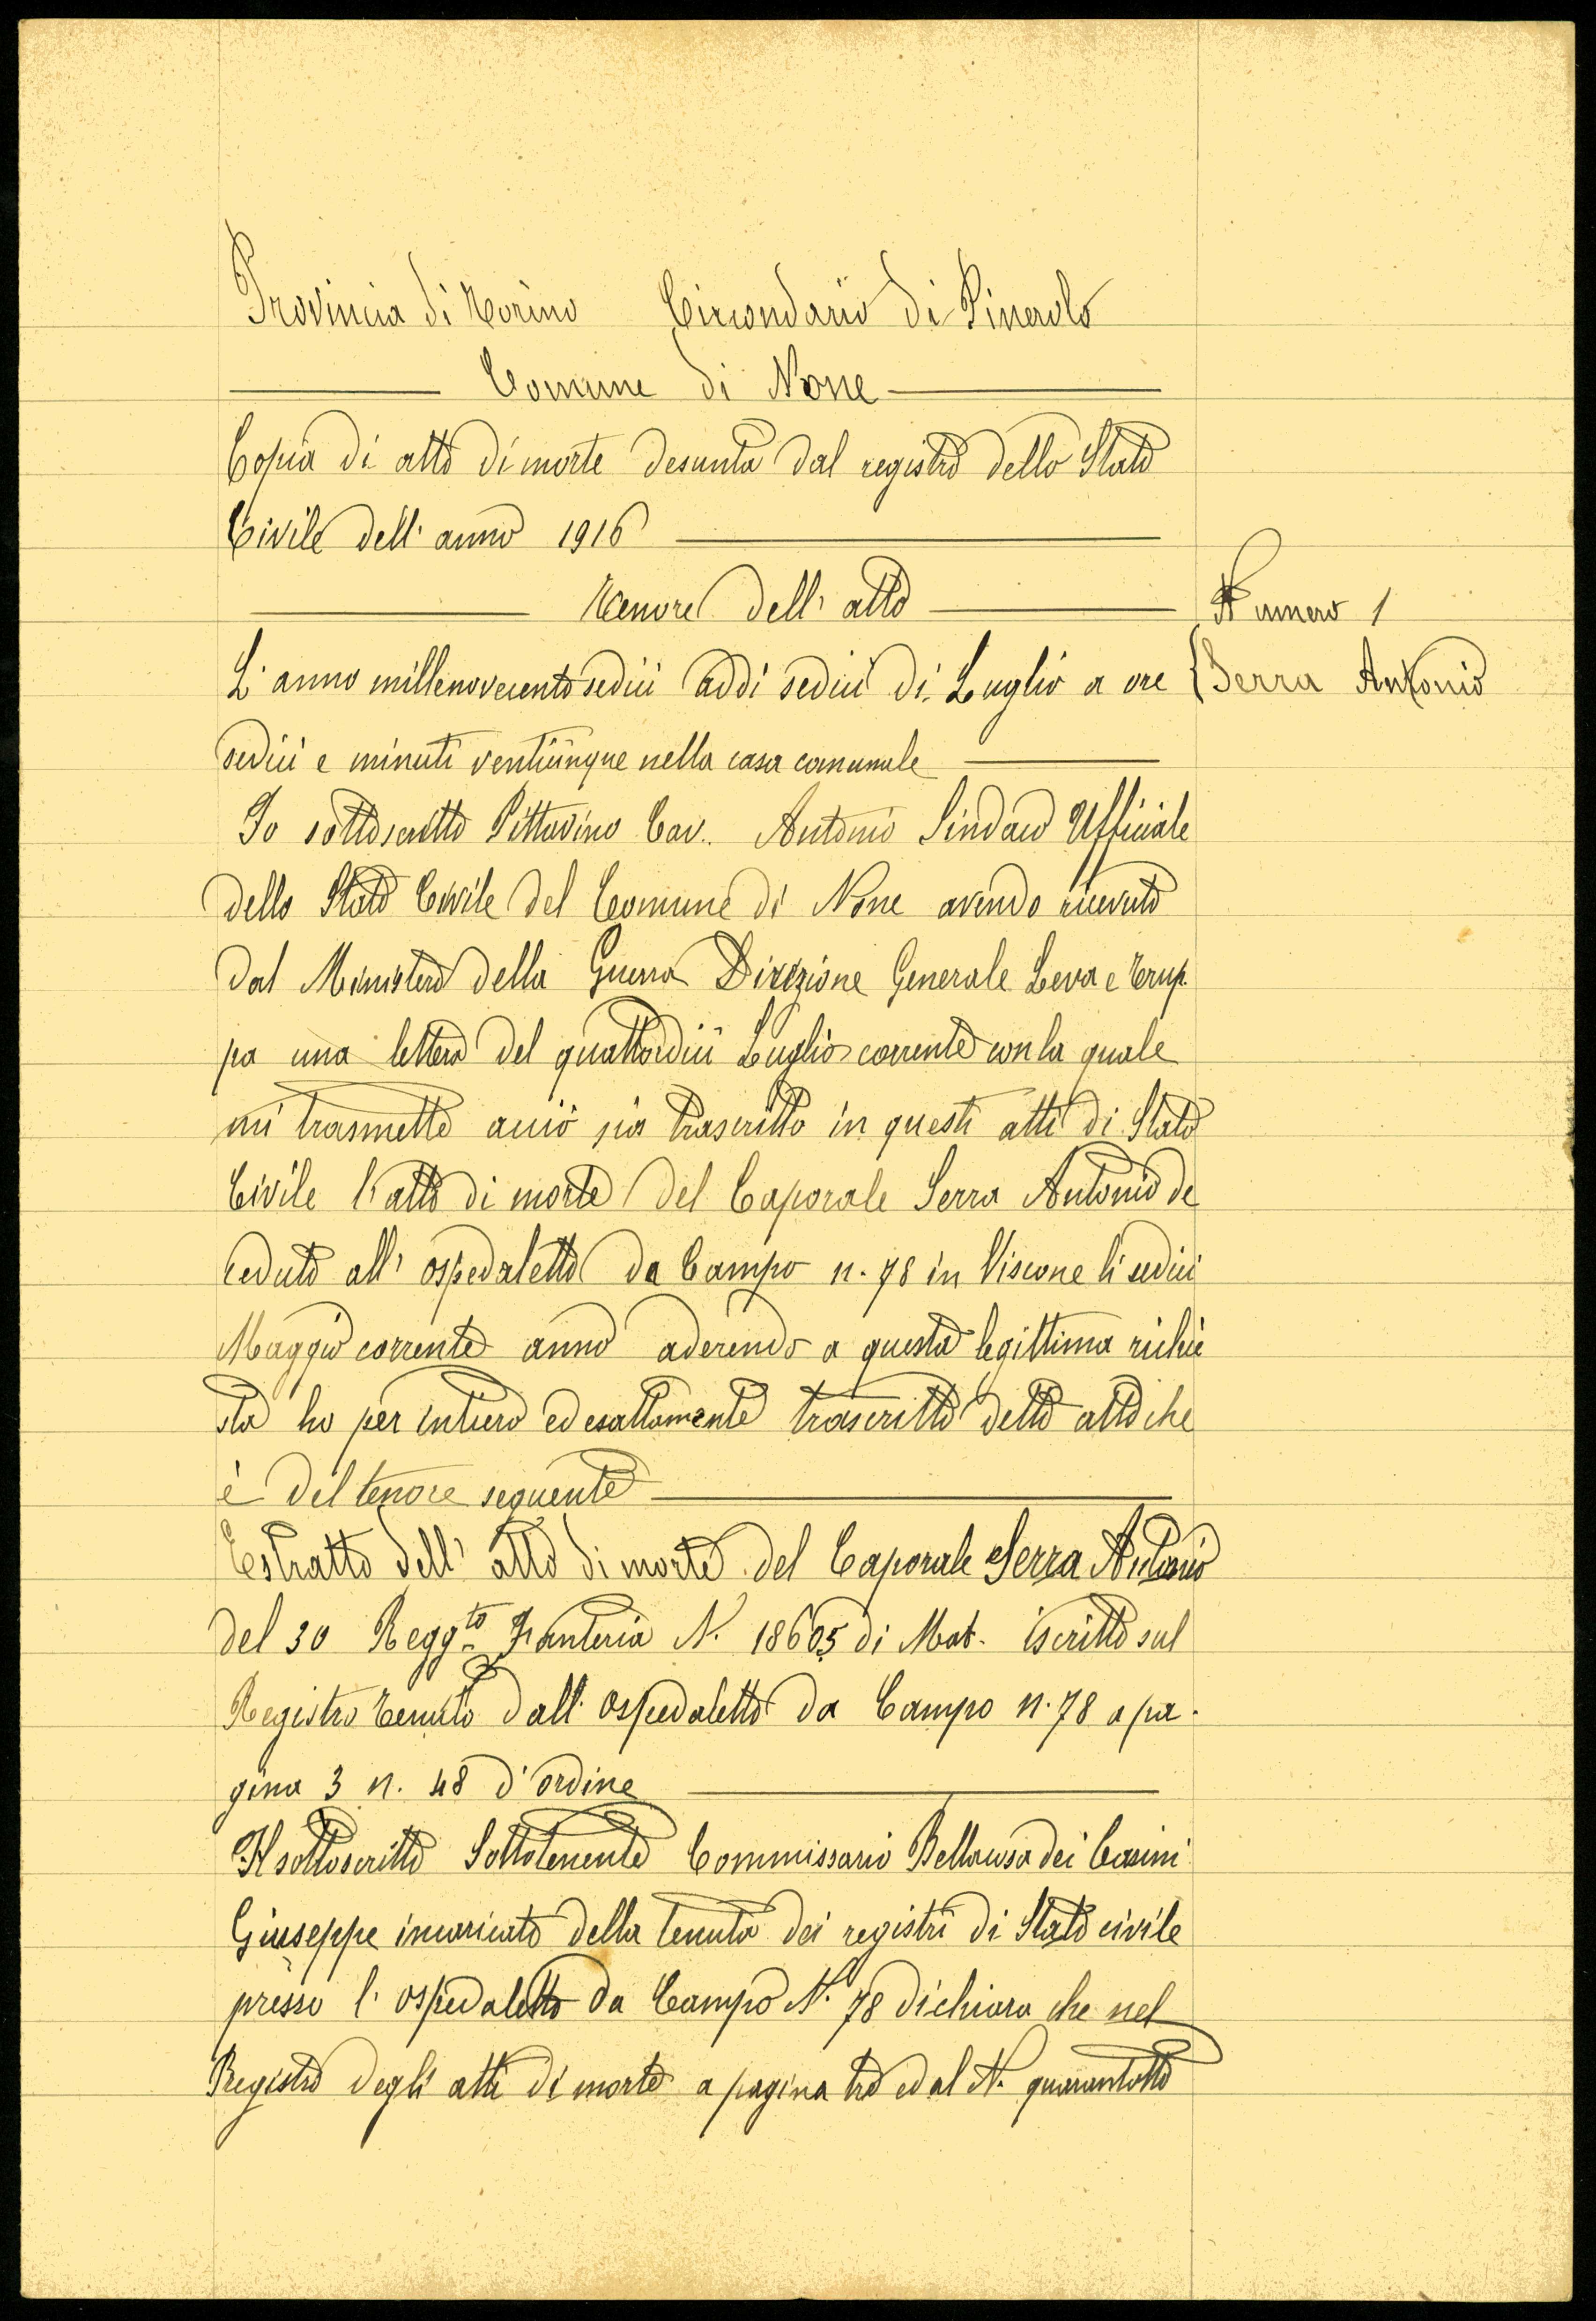 Provincia di Torino Circondario di Pinerolo
Comune di None
Copia di atto di morte desunta dal registro dello Stato
Civile dell'anno 1916
Tenore dell'atto
Numero 1
L'anno millenovecentosedici addi sedici di Luglio a ore
Serra Antonio
sedici e minuti venticinque nella casa comunale
Io sottoscritto Pittavino Cav. Antonio Sindaco Ufficiale
dello Stato Civile del Comune di None avendo ricevuto
dal Ministero della Guerra Direzione Generale Leva e Trup.
pa una lettera del quattordici Luglio corrente con la quale
mi trasmette acciò sia trascritto in questi atti di Stato
Civile l'atto di morte del Caporale Serra Antonio de
ceduto all'ospedaletto da Campo n. 78 in Viscone li sedici
Maggio corrente anno aderendo a questa legittima richie
sta ho per intiero ed esattamente trascritto detto atto che
è del tenore seguente
Estratto dell'atto di morte del Caporale Serra Antonio
del 30 Reggto Fanteria N. 18605 di Mat. iscritto sul
Registro tenuto dall'ospedaletto da Campo n. 78 a pa.
gina 3 n. 48 d'ordine
Il sottoscritto Sottotenente Commissario dei
Giuseppe incaricato della tenuta dei registri di Stato civile
presso l'ospedaletto da Campo N. 78 dichiara che nel
Registro degli atti di morte a pagina tre ed al N. quarantotto